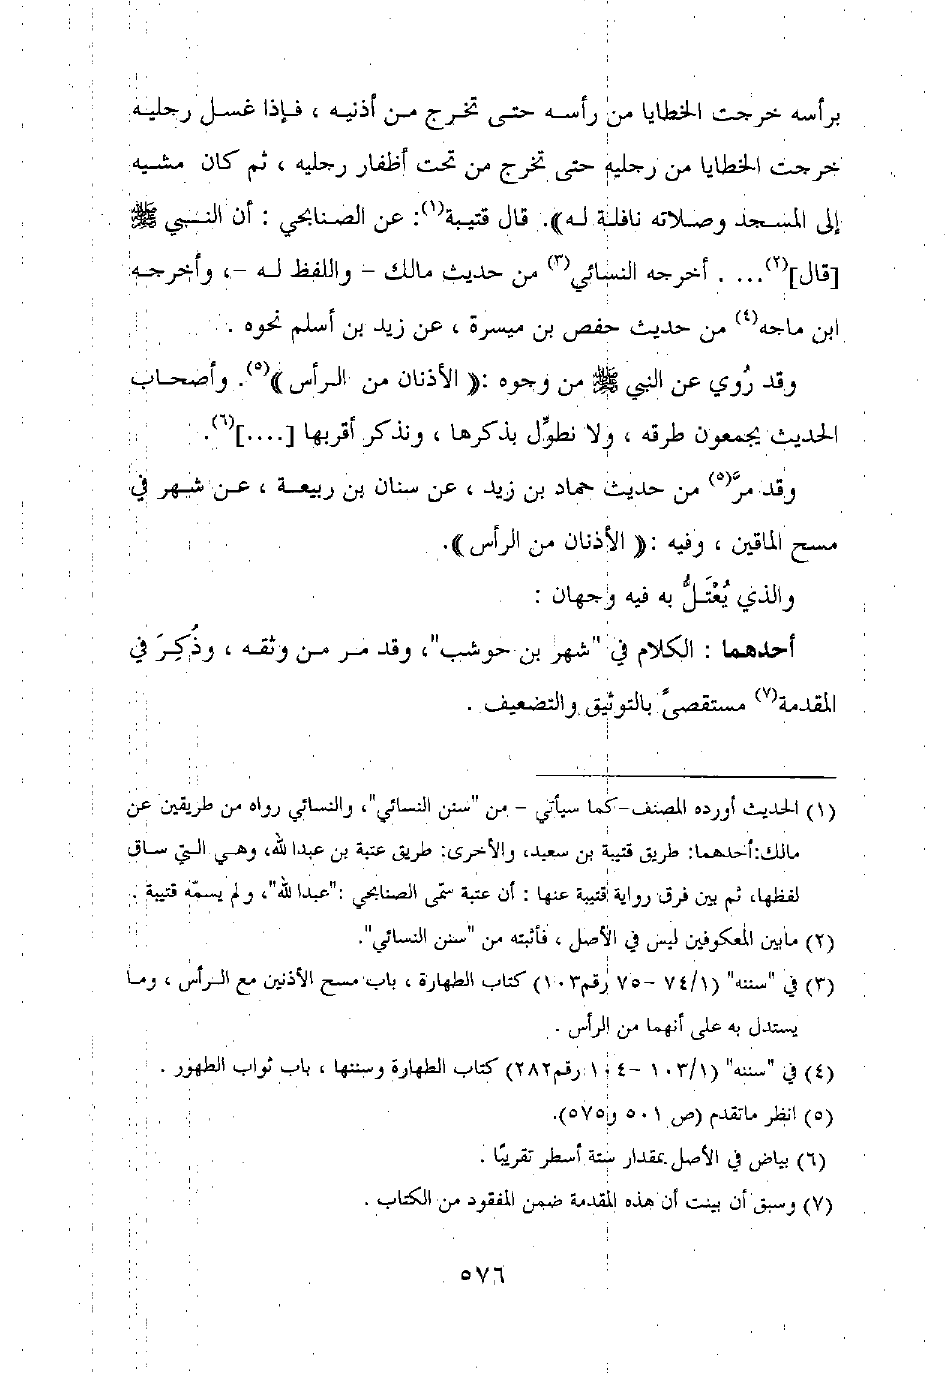 برأسه خرجت الخطايا من رأسه حتى تخرج من أذنيه ، فإذا غسل رجليه
خرجت الخطايا من رجليه حتى تخرج من تحت أظفار رجليه ، ثم كان مشيه
إلى المسجد وصلاته نافلة له)). قال قتيبة(١): عن الصنابحي : أن النبي ﷺ
[قال](٢)... . أخرجه النسائي(٣) من حديث مالك - واللفظ له -، وأخرجه
ابن ماجه(٤) من حديث حفص بن ميسرة ، عن زيد بن أسلم نحوه .
وقد رُوي عن النبي ﷺ من وجوه :(( الأذنان من الرأس ))(٥). وأصحاب
الحديث يجمعون طرقه ، ولا نطوِّل بذكرها ، ونذكر أقربها [....](٦).
وقد مرَّ(٥) من حديث حماد بن زيد ، عن سنان بن ربيعة ، عن شهر في
مسح الماقين ، وفيه :(( الأذنان من الرأس )).
والذي يُعْتَلُّ به فيه وجهان :
أحدهما : الكلام في "شهر بن حوشب"، وقد مر من وثقه ، وذُكِرَ في
المقدمة(٧) مستقصىً بالتوثيق والتضعيف .
(١) الحديث أورده المصنف-كما سيأتي - من "سنن النسائي"، والنسائي رواه من طريقين عن
مالك:أحدهما: طريق قتيبة بن سعيد، والأخرى: طريق عتبة بن عبدالله، وهي التي ساق
لفظها، ثم بين فرق رواية قتيبة عنها : أن عتبة سمّى الصنابحي :"عبدالله"، ولم يسمّه قتيبة .
(٢) مابين المعكوفين ليس في الأصل ، فأثبته من "سنن النسائي".
(٣) في "سننه" (٧٤/١ -٧٥ رقم١٠٣) كتاب الطهارة ، باب مسح الأذنين مع الرأس ، وما
يستدل به على أنهما من الرأس .
(٤) في "سننه" (١٠٣/١ -١٠٤ رقم٢٨٢) كتاب الطهارة وسننها ، باب ثواب الطهور .
(٥) انظر ماتقدم (ص ٥٠١ و٥٧٥).
(٦) بياض في الأصل بمقدار ستة أسطر تقريبًا .
(٧) وسبق أن بينت أن هذه المقدمة ضمن المفقود من الكتاب .
٥٧٦